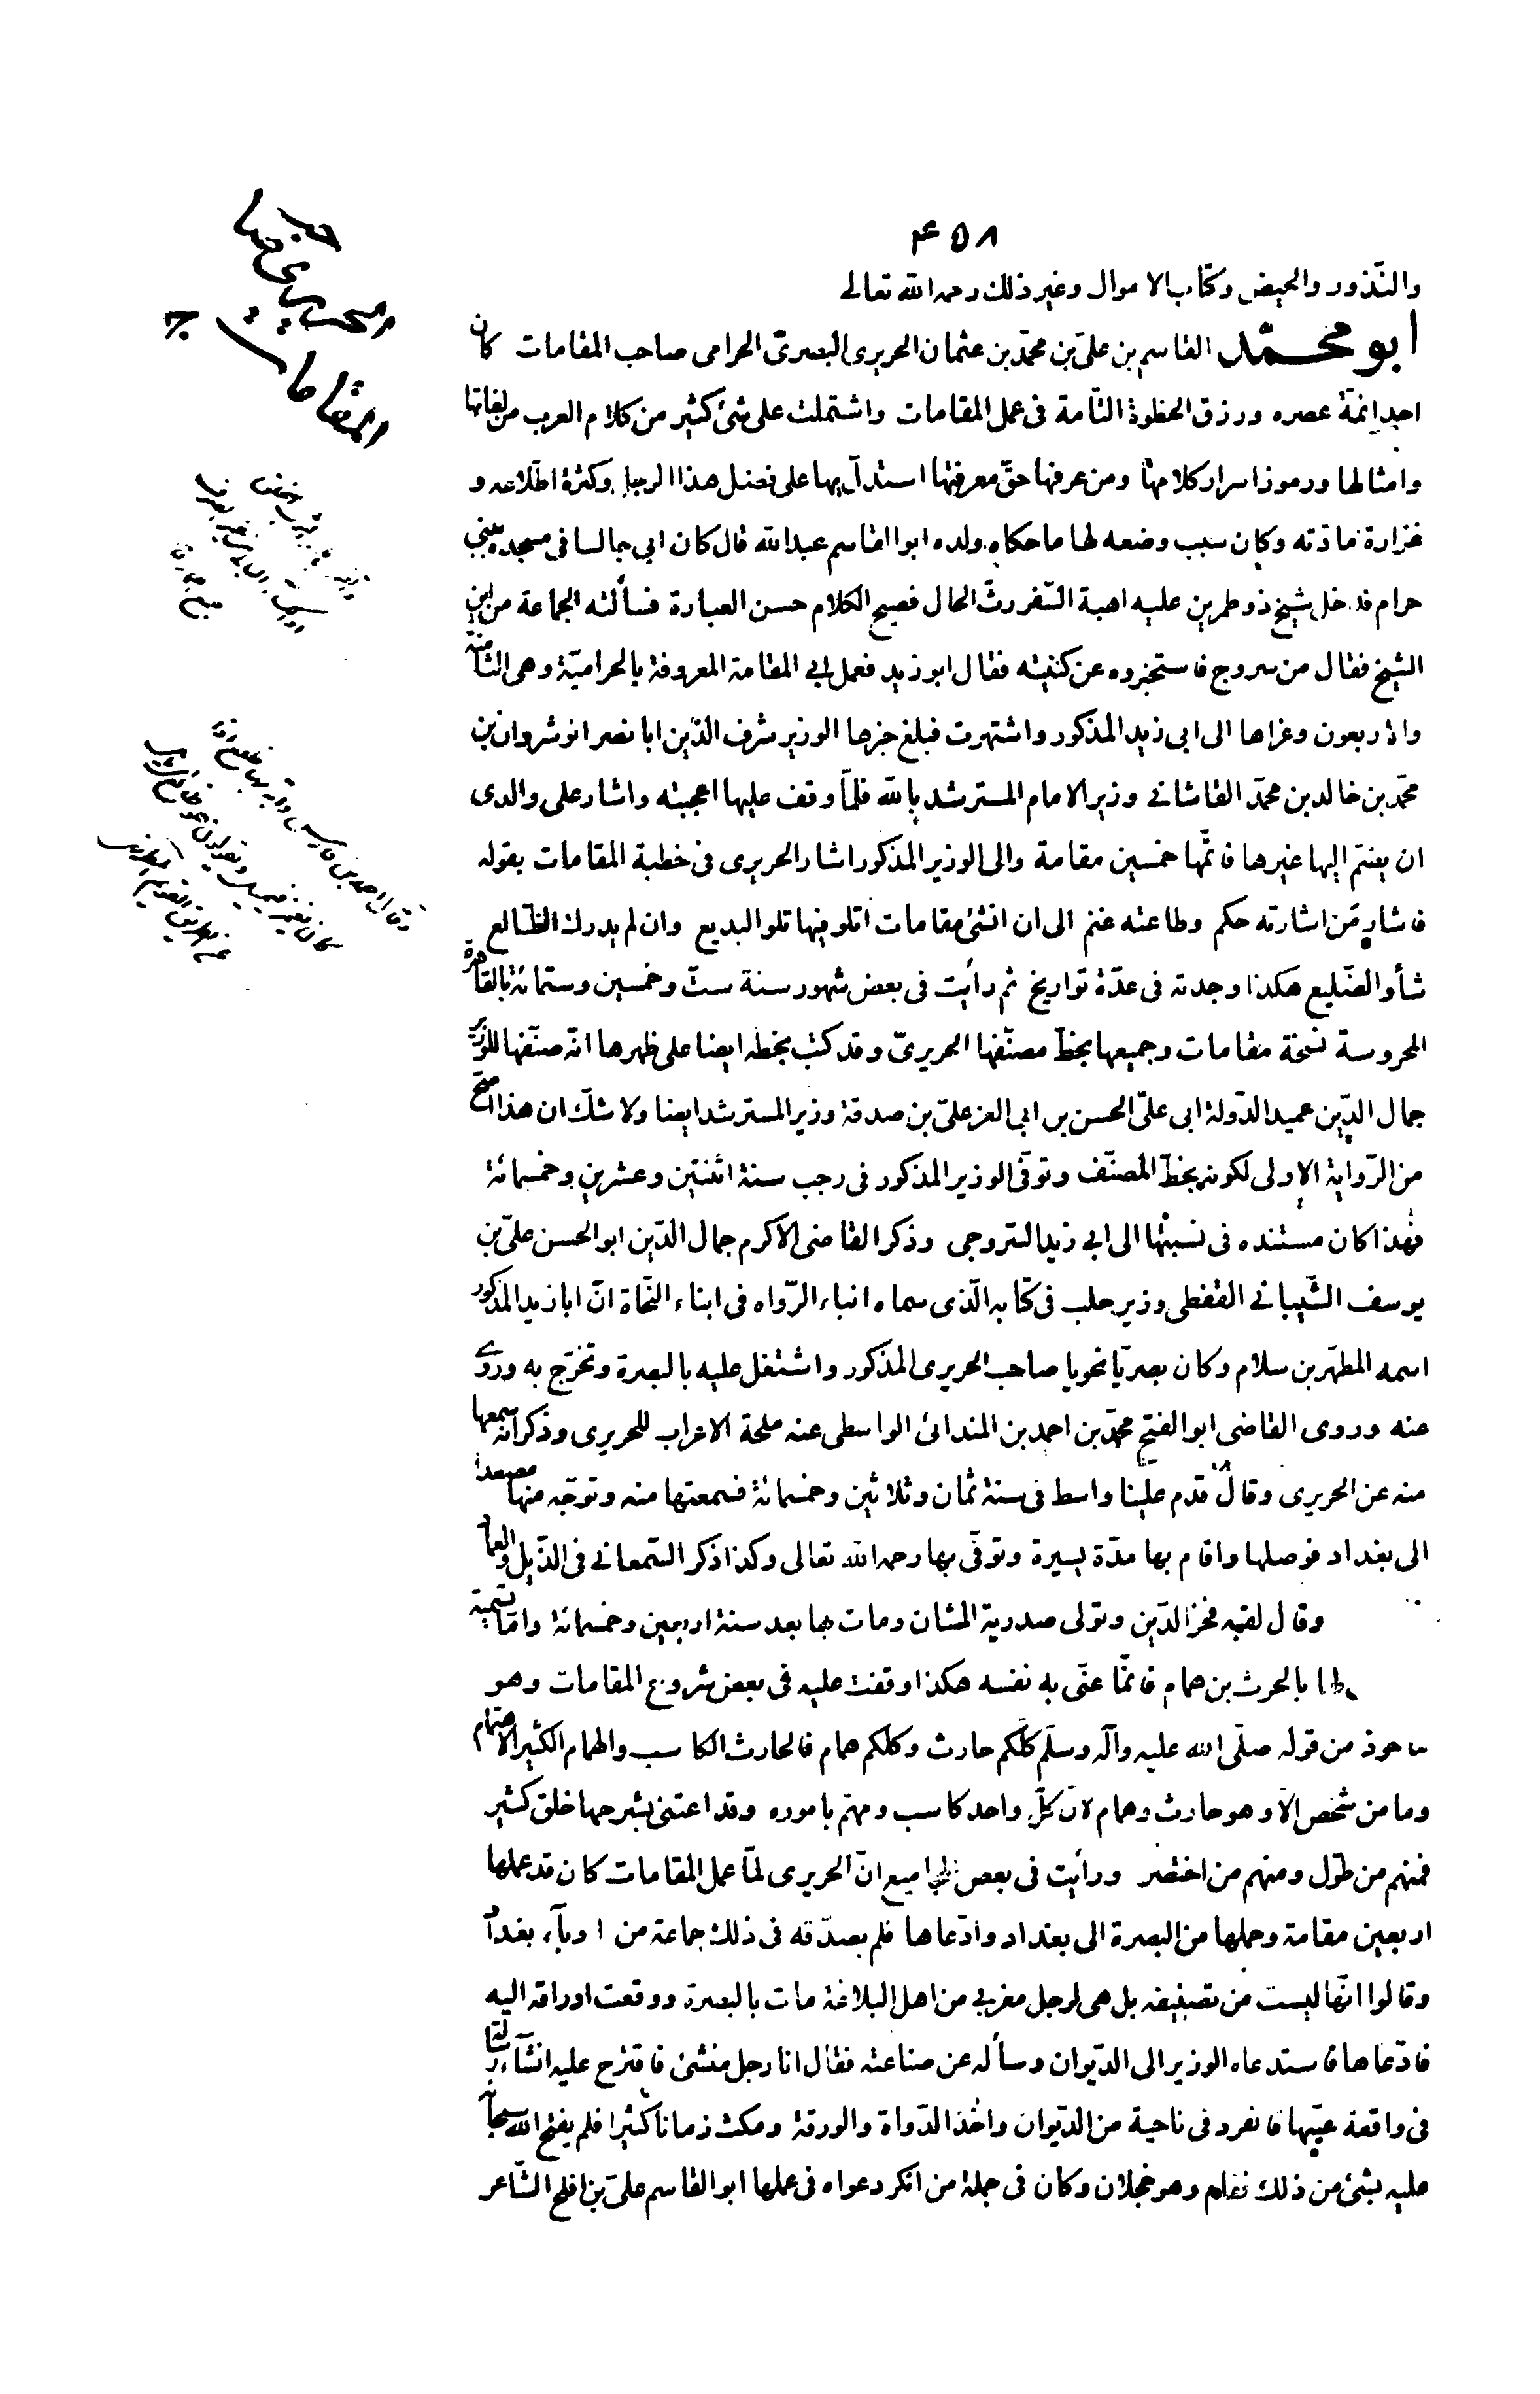 ۴۵۸
والنّذور والحيض وكتاب الاموال وغير ذلك رحمه الله تعالى
ابو محمّد القاسم بن علىّ بن محمّد بن عثمان الحريرى البصرىّ الحرامى صاحب المقامات كان
احد ائمّة عصره ورزق الحظوة التّامة فى عمل المقامات واشتملت على شئ كثير من كلام العرب من لغاتها
وامثالها ورموز اسرار كلامها ومن عرفها حقّ معرفتها استدلّ بها على فضل هذا الرجل وكثرة اطّلاعه و
غزارة مادّته وكان سبب وضعه لها ما حكاه ولده ابوا القاسم عبدالله قال كان ابى جالسا فى مسجده ببنى
حرام فدخل شيخ ذو طمرين عليه اهبة السّفر رثّ الحال فصيح الكلام حسن العبارة فسألته الجماعة من اين
الشيخ فقال من سروج فاستخبروه عن كنيته فقال ابو زيد فعمل ابى المقامة المعروفة بالحراميّة وهى الثّامنة
والاربعون وعزاها الى ابى زيد المذكور واشتهرت فبلغ خبرها الوزير شرف الدّين ابا نصر انوشروان بن
محمّد بن خالد بن محمّد القاشانے وزير الامام المسترشد بالله فلمّا وقف عليها اعجبته واشار على والدى
ان يضمّ اليها غيرها فاتمّها خمسين مقامة والى الوزير المذكور اشار الحريرى فى خطبة المقامات بقوله
فاشار من اشارته حكم وطاعته غنم الى ان انشئ مقامات اتلو فيها تلو البديع وان لم يدرك الظّالع
شأو الضّليع هكذا وجدته فى عدّة تواريخ ثم رأيت فى بعض شهور سنة ستّ وخمسين وستمائة بالقاهرة
المحروسة نسخة مقامات وجميعها بخطّ مصنّفها الحريرىّ وقد كتب بخطه ايضا على ظهرها انّه صنّفها للوزير
جمال الدّين عميد الدّولة ابى علىّ الحسن بن ابى العز علىّ بن صدقة وزير المسترشد ايضا ولا شكّ ان هذا اصحّ
من الرّواية الاولى لكونه بخطّ المصنّف وتوفّى الوزير المذكور فى رجب سنة اثنتين وعشرين وخمسمائة
فهذا كان مستنده فى نسبتها الى ابى زيد السّروجى وذكر القاضى الاكرم جمال الدّين ابو الحسن علىّ بن
يوسف الشّيبانے القفطى وزير حلب فى كتابه الّذى سماه انباء الرّواه فى ابناء النّحاة انّ ابا زيد المذكور
اسمه المطهّر بن سلام وكان بصريّا نحويا صاحب الحريرى المذكور واشتغل عليه بالبصرة وتخرّج به وروے
عنه وروى القاضى ابو الفتح محمّد بن احمد بن المندائى الواسطى عنه ملحة الاعراب للحريرى وذكر انّه سمعها
منه عن الحريرى وقال قدم علينا واسط فى سنة ثمان وثلاثين وخمسمائة فسمعتها منه وتوجّه منها مصعدا
الى بغداد فوصلها واقام بها مدّة يسيرة وتوفّى بها رحمه الله تعالى وكذا ذكر السّمعانے فى الذّيل والعما
وقال لقبه فخر الدّين وتولى صدرية المشان ومات بها بعد سنة اربعين وخمسمائة وامّا تسمية
بالحرث بن همام فانّما عنّى به نفسه هكذا وقفت عليه فى بعض شروح المقامات وهو
ماخوذ من قوله صلّى الله عليه وآله وسلّم كلّكم حارث وكلكم همام فالحارث الكاسب والهمام الكثير الاهتمام
وما من شخص الّا وهو حارث وهمام لانّ كلّ واحد كاسب ومهتم باموره وقد اعتنى بشرحها خلق كثير
فمنهم من طوّل ومنهم من اختصر ورأيت فى بعض المجاميع انّ الحريرى لمّا عمل المقامات كان قد عملها
اربعين مقامة وحملها من البصرة الى بغداد وادّعاها فلم يصدّقه فى ذلك جماعة من ادبآء بغدا
وقالوا انّها ليست من تصنيفه بل هى لرجل مغربى من اهل البلاغة مات بالبصرة ووقعت اوراقه اليه
فادّعاها فاستدعاه الوزير الى الدّيوان وسأله عن صناعته فقال انا رجل منشئ فاقترح عليه انشآء رسالة
فى واقعة عيّنها فانفرد فى ناحية من الدّيوان واخذ الدّواة والورقة ومكث زمانا كثيرا فلم يفتح الله سبحا
عليه بشئ من ذلك فقام وهو خجلان وكان فى جملة من انكر دعواه فى عملها ابو القاسم علىّ بن افلح الشّاعر
المقامات